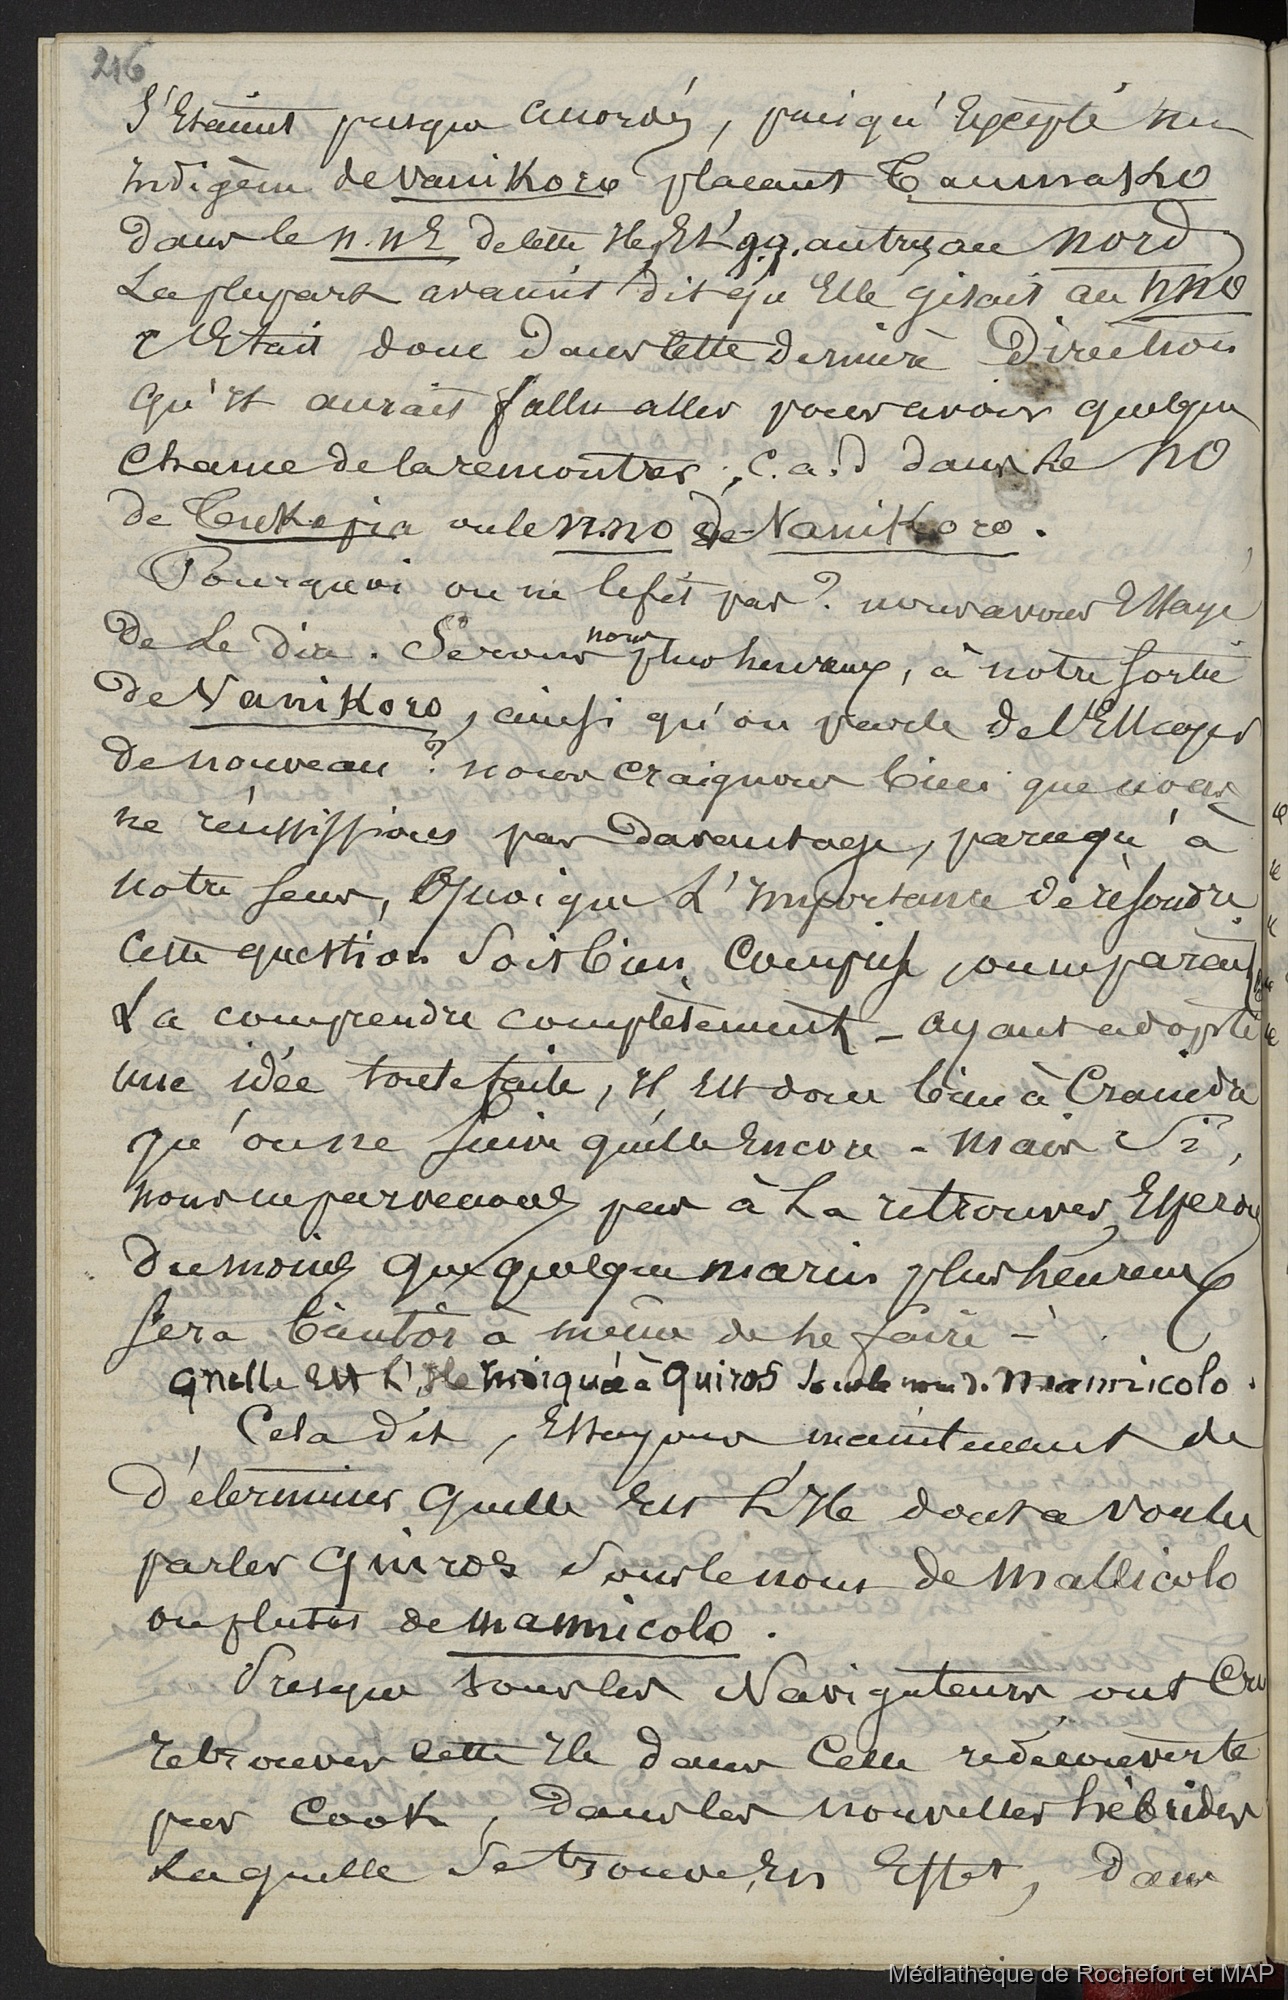 216
s'étaient presque accordés, puisqu'Excepté un
indigène de Vanikoro plaçant Taumako
dans le n.nE de cette Ile, Et qq. autres au nord
La plupart avaient dit qu'Elle gisait au nno
C'Etait donc dans cette dernière Direction
qu'il aurait fallu aller pour avoir quelque
chance de la rencontrer ; c.a.d dans le NO
de Tukopia ou le n.no de Vanikoro.
Pourquoi on ne le fit pas ? nous avons Essayé
de le dire. Serons nous plus heureux, à notre sortie
de Vanikoro, ainsi qu'on parle de l'Essayer
de nouveau ? nous craignons bien que nous
ne réussissions pas davantage, parcequ'à
notre sens, Quoique L'importance de résoudre
cette question soit bien comprise, on ne parait
La comprendre complètement - ayant adopté
une idée toute faite, il Est donc bien à Craindre
qu'on ne suive qu'elle Encore - mais si,
nous ne parvenons pas à La retrouver, Esperons
du moins que quelque marin plus heureux
sera bientôt à même de le faire -
quelle Est L'Ile indiquée à Quiros sous le nom de mannicolo.
Cela dit, Essayons maintenant de
déterminer quelle Est L'Ile dont a voulu
parler Quiros sous le nom de Mallicolo
ou plutôt de mannicolo.
Presque tous les Navigateurs ont Cru
retrouver cette Ile dans Celle redécouverte
par Cook, dans les nouvelles hébrides
Laquelle se trouve, En Effet, dans
Médiathèque de Rochefort et MAP